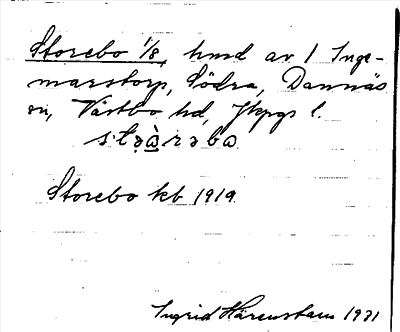 Storebo 1/8, hmd av 1 Inge-
marstorp, Södra, Dannäs
sn, Västbo hd, Jkpgs l.
Storebo kb 1919.
Ingrid Härenstam 1931